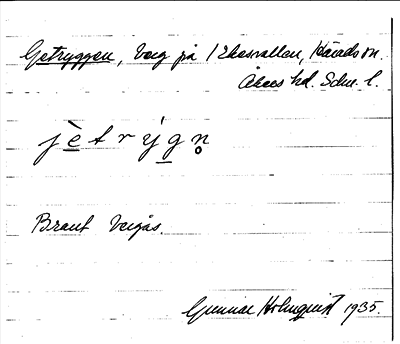 Getryggen, berg på Ekesvallen, Härads sn.
Åkers hd. Sdm. l.
jètrýgn̥
Brant bergås.
Gunnar Holmquist 1935.